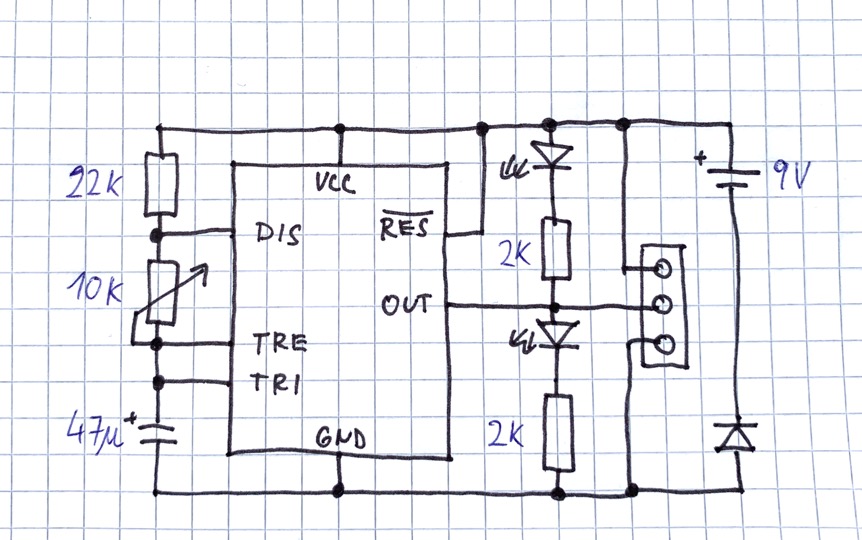 22K
10K
47µ
+
VCC
DIS
RES
OUT
TRE
TRI
GND
2K
2K
+
9V